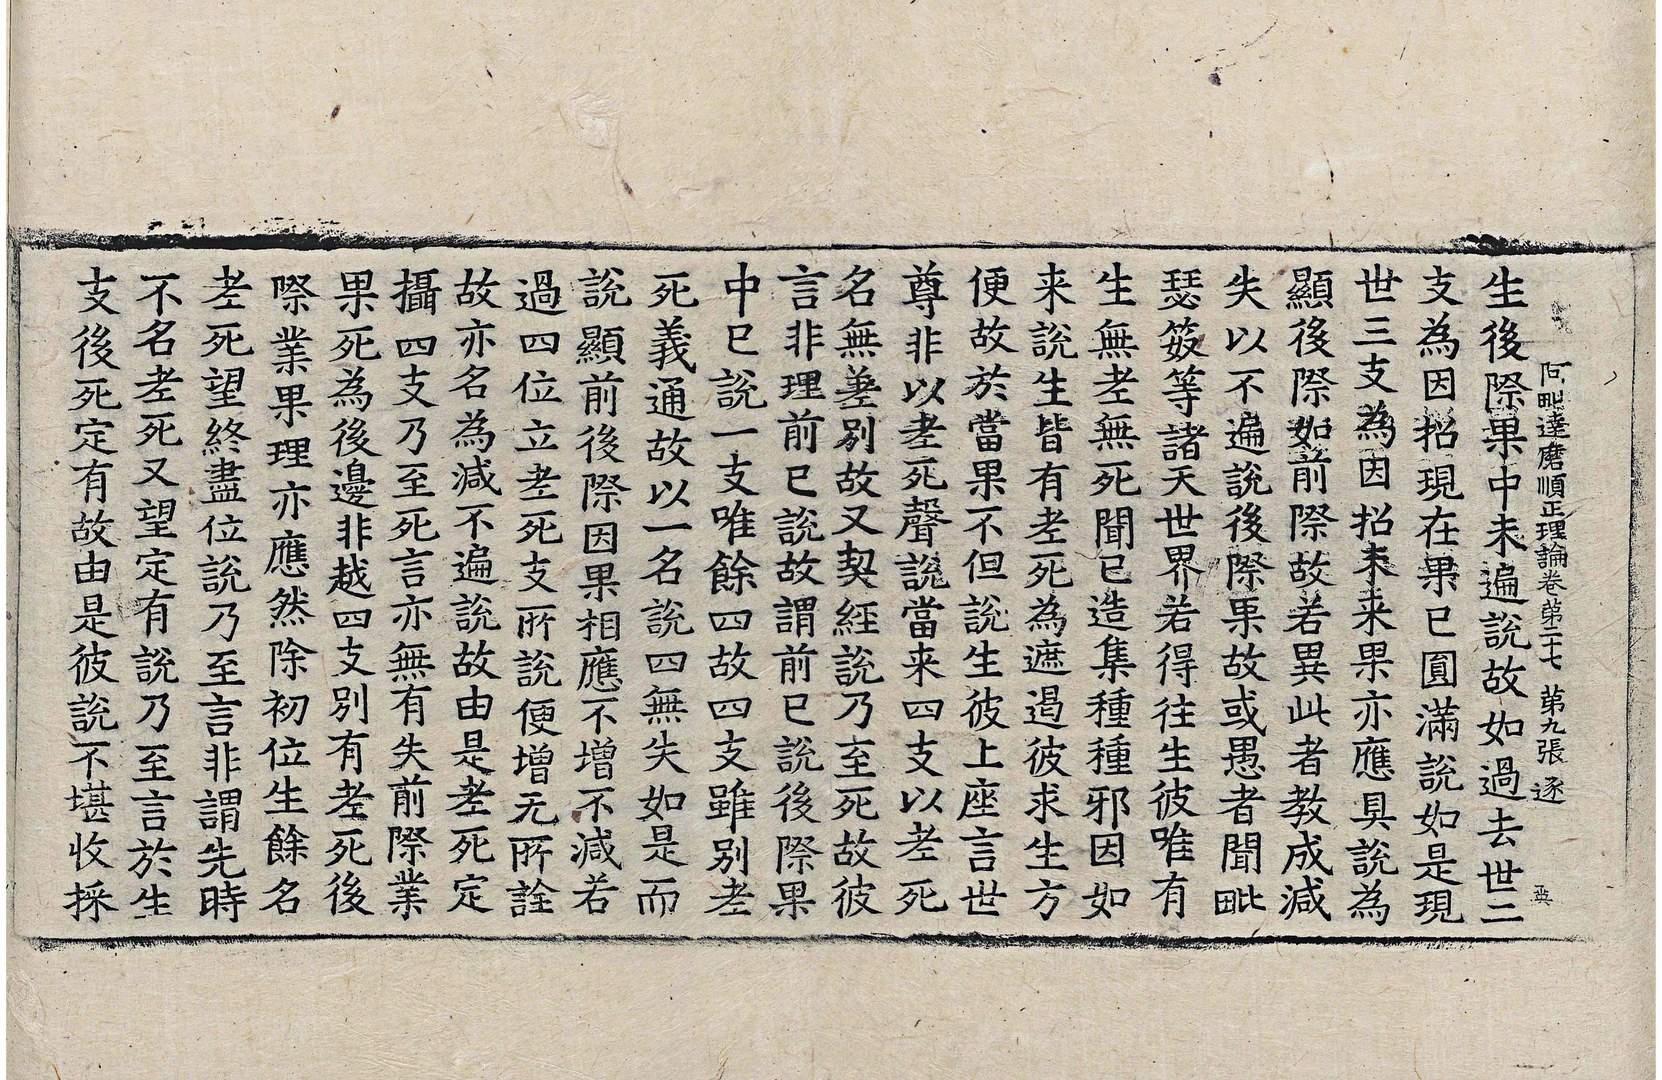 阿毗達磨順正理論卷第二十七 第九張 逐
生後際果中未遍說故如過去世二
支為因招現在果已圓滿說如是現
世三支為因招未来果亦應具說為
顯後際如前際故若異此者教成減
失以不遍說後際果故或愚者聞毗
瑟笯等諸天世界若得往生彼唯有
生無老無死聞已造集種種邪因如
来說生皆有老死為遮遏彼求生方
便故於當果不但說生彼上座言世
尊非以老死聲說當来四支以老死
名無差別故又契經說乃至死故彼
言非理前已說故謂前已說後際果
中已說一支唯餘四故四支雖別老
死義通故以一名說四無失如是而
說顯前後際因果相應不增不減若
過四位立老死支所說便增无所詮
故亦名為減不遍說故由是老死定
攝四支乃至死言亦無有失前際業
果死為後邊非越四支別有老死後
際業果理亦應然除初位生餘名
老死望終盡位說乃至言非謂先時
不名老死又望定有說乃至言於生
支後死定有故由是彼說不堪收採